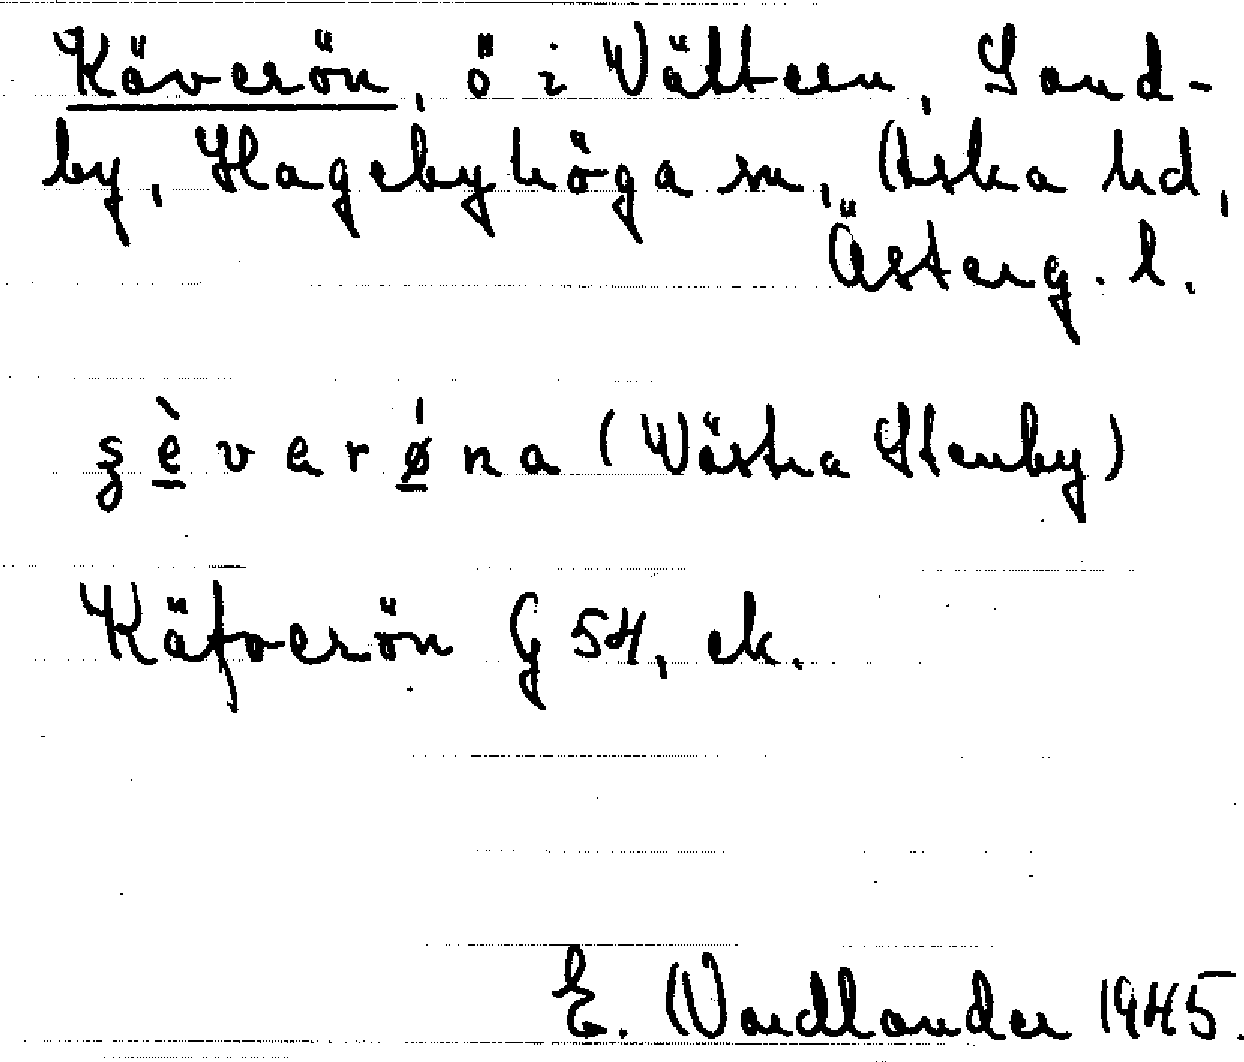 Käverön, ö i Vättern, Sand-
by, Hagebyhöga sn, Aska hd,
Österg. l.
ʂ è v e r ǿ n a (Västra Stenby)
Käfverön G 54, ek.
E. Nordlander 1945.